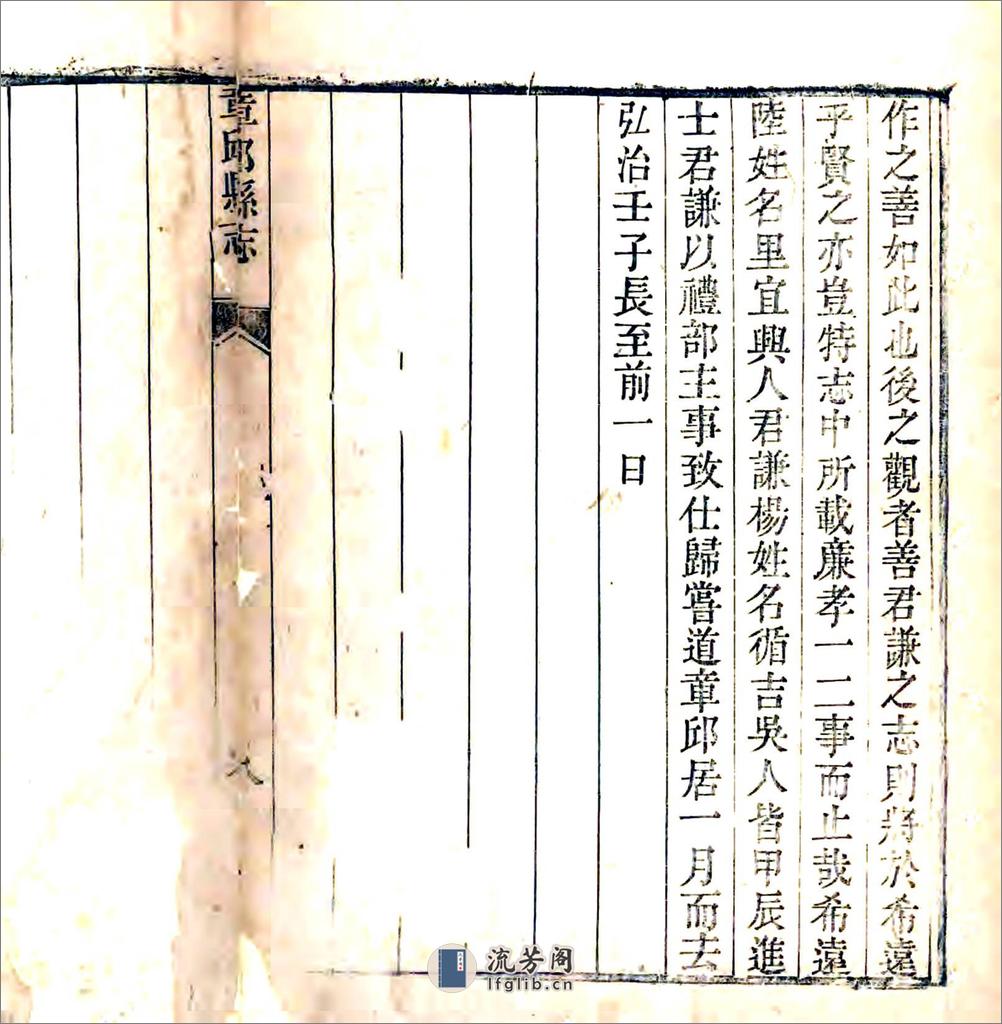 作之善如此也後之觀者善君謙之志則將於希遠
乎賢之亦豈特志中所載廉孝一二事而止哉希遠
陸姓名里宜興人君謙楊姓名循吉吳人皆甲辰進
士君謙以禮部主事致仕歸嘗道章邱居一月而去
弘治壬子長至前一日
章邱縣志
流芳阁
lfglib.cn